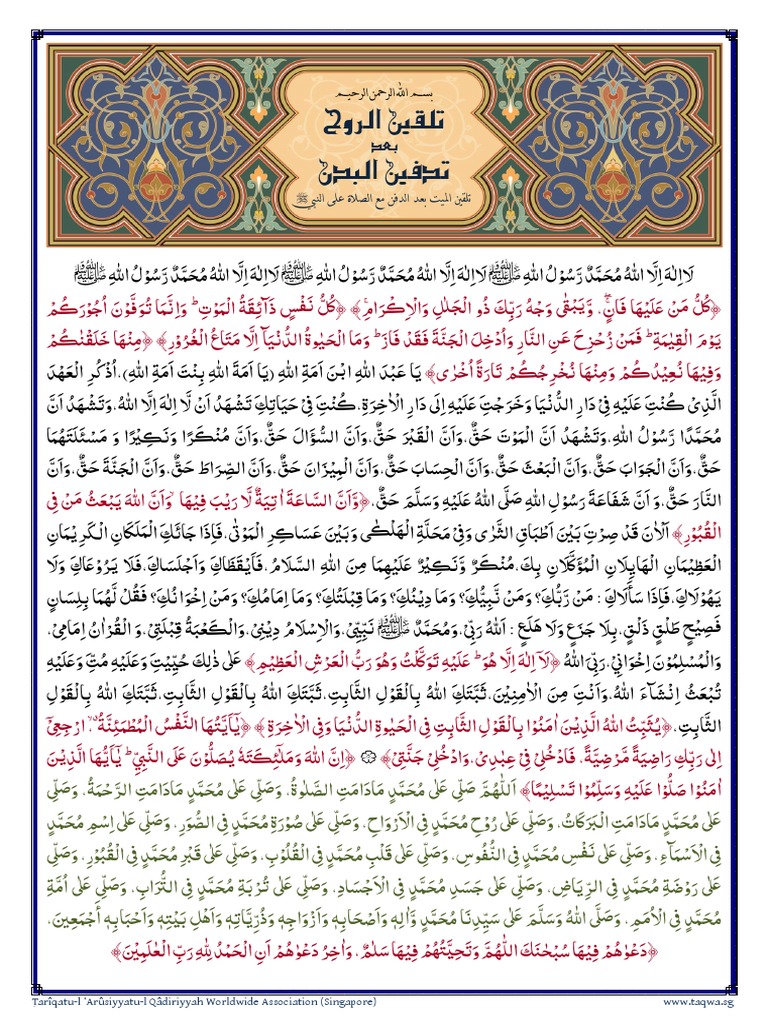 بسم الله الرحمن الرحيم
تلقين الروح
بعد
تدفين البدن
تلقين الميت بعد الدفن مع الصلاة على النبي ﷺ
لَا اِلٰهَ اِلَّا اللهُ مُحَمَّدٌ رَّسُوْلُ اللهِ ﷺ لَا اِلٰهَ اِلَّا اللهُ مُحَمَّدٌ رَّسُوْلُ اللهِ ﷺ لَا اِلٰهَ اِلَّا اللهُ مُحَمَّدٌ رَّسُوْلُ اللهِ ﷺ
﴿كُلُّ مَنْ عَلَيْهَا فَانٍ ۚ وَّيَبْقٰى وَجْهُ رَبِّكَ ذُو الْجَلٰلِ وَالْاِكْرَامِ ۚ﴾ ﴿كُلُّ نَفْسٍ ذَآئِقَةُ الْمَوْتِ ؕ وَاِنَّمَا تُوَفَّوْنَ اُجُوْرَكُمْ
يَوْمَ الْقِيٰمَةِ ؕ فَمَنْ زُحْزِحَ عَنِ النَّارِ وَاُدْخِلَ الْجَنَّةَ فَقَدْ فَازَ ؕ وَمَا الْحَيٰوةُ الدُّنْيَآ اِلَّا مَتَاعُ الْغُرُوْرِ﴾ ﴿مِنْهَا خَلَقْنٰكُمْ
وَفِيْهَا نُعِيْدُكُمْ وَمِنْهَا نُخْرِجُكُمْ تَارَةً اُخْرٰى﴾ يَا عَبْدَ اللهِ ابْنَ اَمَةِ اللهِ (يَا اَمَةَ اللهِ بِنْتَ اَمَةِ اللهِ)، اُذْكُرِ الْعَهْدَ
الَّذِىْ كُنْتَ عَلَيْهِ فِىْ دَارِ الدُّنْيَا وَخَرَجْتَ عَلَيْهِ اِلٰى دَارِ الْاٰخِرَةِ، كُنْتَ فِىْ حَيَاتِكَ تَشْهَدُ اَنْ لَّا اِلٰهَ اِلَّا اللهُ، وَتَشْهَدُ اَنَّ
مُحَمَّدًا رَّسُوْلُ اللهِ، وَتَشْهَدُ اَنَّ الْمَوْتَ حَقٌّ، وَاَنَّ الْقَبْرَ حَقٌّ، وَاَنَّ السُّؤَالَ حَقٌّ، وَاَنَّ مُنْكَرًا وَنَكِيْرًا وَ مَسْئَلَتَهُمَا
حَقٌّ، وَاَنَّ الْجَوَابَ حَقٌّ، وَاَنَّ الْبَعْثَ حَقٌّ، وَاَنَّ الْحِسَابَ حَقٌّ، وَاَنَّ الْمِيْزَانَ حَقٌّ، وَاَنَّ الصِّرَاطَ حَقٌّ، وَاَنَّ الْجَنَّةَ حَقٌّ، وَاَنَّ
النَّارَ حَقٌّ، وَ اَنَّ شَفَاعَةَ رَسُوْلِ اللهِ صَلَّى اللهُ عَلَيْهِ وَسَلَّمَ حَقٌّ، ﴿وَّاَنَّ السَّاعَةَ اٰتِيَةٌ لَّا رَيْبَ فِيْهَا ۙ وَاَنَّ اللهَ يَبْعَثُ مَنْ فِى
الْقُبُوْرِ﴾ اَلْاٰنَ قَدْ صِرْتَ بَيْنَ اَطْبَاقِ الثَّرٰى وَفِىْ مَحَلَّةِ الْهَلْكٰى وَبَيْنَ عَسَاكِرِ الْمَوْتٰى، فَاِذَا جَائَكَ الْمَلَكَانِ الْكَرِيْمَانِ
الْعَظِيْمَانِ الْهَايِلَانِ الْمُؤَكَّلَانِ بِكَ، مُنْكَرٌ وَّنَكِيْرٌ عَلَيْهِمَا مِنَ اللهِ السَّلَامُ، فَاَيْقَظَاكَ وَاَجْلَسَاكَ، فَلَا يَرُوْعَاكَ وَلَا
يَهُوْلَاكَ، فَاِذَا سَأَلَاكَ : مَنْ رَّبُّكَ؟ وَمَنْ نَّبِيُّكَ؟ وَمَا دِيْنُكَ؟ وَمَا قِبْلَتُكَ؟ وَمَا اِمَامُكَ؟ وَمَنْ اِخْوَانُكَ؟ فَقُلْ لَّهُمَا بِلِسَانٍ
فَصِيْحٍ طَلْقٍ ذَلْقٍ، بِلَا جَزَعٍ وَلَا هَلَعٍ : اَللهُ رَبِّىْ، وَمُحَمَّدٌ ﷺ نَبِيِّىْ، وَالْاِسْلَامُ دِيْنِىْ، وَالْكَعْبَةُ قِبْلَتِىْ، وَ الْقُرْاٰنُ اِمَامِىْ،
وَالْمُسْلِمُوْنَ اِخْوَانِىْ، رَبِّىَ اللهُ ﴿لَآ اِلٰهَ اِلَّا هُوَ ؕ عَلَيْهِ تَوَكَّلْتُ وَهُوَ رَبُّ الْعَرْشِ الْعَظِيْمِ﴾ عَلٰى ذٰلِكَ حُيِّيْتَ وَعَلَيْهِ مُتَّ وَعَلَيْهِ
تُبْعَثُ اِنْشَآءَ اللهُ، وَاَنْتَ مِنَ الْاٰمِنِيْنَ، ثَبَّتَكَ اللهُ بِالْقَوْلِ الثَّابِتِ، ثَبَّتَكَ اللهُ بِالْقَوْلِ الثَّابِتِ، ثَبَّتَكَ اللهُ بِالْقَوْلِ
الثَّابِتِ، ﴿يُثَبِّتُ اللهُ الَّذِيْنَ اٰمَنُوْا بِالْقَوْلِ الثَّابِتِ فِى الْحَيٰوةِ الدُّنْيَا وَفِى الْاٰخِرَةِ﴾ ﴿يٰٓاَيَّتُهَا النَّفْسُ الْمُطْمَئِنَّةُ ۙ ارْجِعِىْٓ
اِلٰى رَبِّكِ رَاضِيَةً مَّرْضِيَّةً ۚ فَادْخُلِىْ فِىْ عِبٰدِىْ ۙ وَادْخُلِىْ جَنَّتِىْ﴾ ۞ ﴿اِنَّ اللهَ وَمَلٰٓئِكَتَهٗ يُصَلُّوْنَ عَلَى النَّبِىِّ ؕ يٰٓاَيُّهَا الَّذِيْنَ
اٰمَنُوْا صَلُّوْا عَلَيْهِ وَسَلِّمُوْا تَسْلِيْمًا﴾ اَللّٰهُمَّ صَلِّى عَلٰى مُحَمَّدٍ مَادَامَتِ الصَّلٰوةُ، وَصَلِّى عَلٰى مُحَمَّدٍ مَادَامَتِ الرَّحْمَةُ، وَصَلِّى
عَلٰى مُحَمَّدٍ مَادَامَتِ الْبَرَكَاتُ، وَصَلِّى عَلٰى رُوْحِ مُحَمَّدٍ فِى الْاَرْوَاحِ، وَصَلِّى عَلٰى صُوْرَةِ مُحَمَّدٍ فِى الصُّوَرِ، وَصَلِّى عَلٰى اِسْمِ مُحَمَّدٍ
فِى الْاَسْمَآءِ، وَصَلِّى عَلٰى نَفْسِ مُحَمَّدٍ فِى النُّفُوْسِ، وَصَلِّى عَلٰى قَلْبِ مُحَمَّدٍ فِى الْقُلُوْبِ، وَصَلِّى عَلٰى قَبْرِ مُحَمَّدٍ فِى الْقُبُوْرِ، وَصَلِّى
عَلٰى رَوْضَةِ مُحَمَّدٍ فِى الرِّيَاضِ، وَصَلِّى عَلٰى جَسَدِ مُحَمَّدٍ فِى الْاَجْسَادِ، وَصَلِّى عَلٰى تُرْبَةِ مُحَمَّدٍ فِى التُّرَابِ، وَصَلِّى عَلٰى اُمَّةِ
مُحَمَّدٍ فِى الْاُمَمِ، وَصَلَّى اللهُ وَسَلَّمَ عَلٰى سَيِّدِنَا مُحَمَّدٍ وَّاٰلِهٖ وَاَصْحَابِهٖ وَاَزْوَاجِهٖ وَذُرِّيَّاتِهٖ وَاَهْلِ بَيْتِهٖ وَاَحْبَابِهٖ اَجْمَعِيْنَ،
﴿دَعْوٰهُمْ فِيْهَا سُبْحٰنَكَ اللّٰهُمَّ وَتَحِيَّتُهُمْ فِيْهَا سَلٰمٌ ۚ وَاٰخِرُ دَعْوٰهُمْ اَنِ الْحَمْدُ لِلّٰهِ رَبِّ الْعٰلَمِيْنَ﴾
Tarîqatu-l 'Arûsiyyatu-l Qâdiriyyah Worldwide Association (Singapore)
www.taqwa.sg